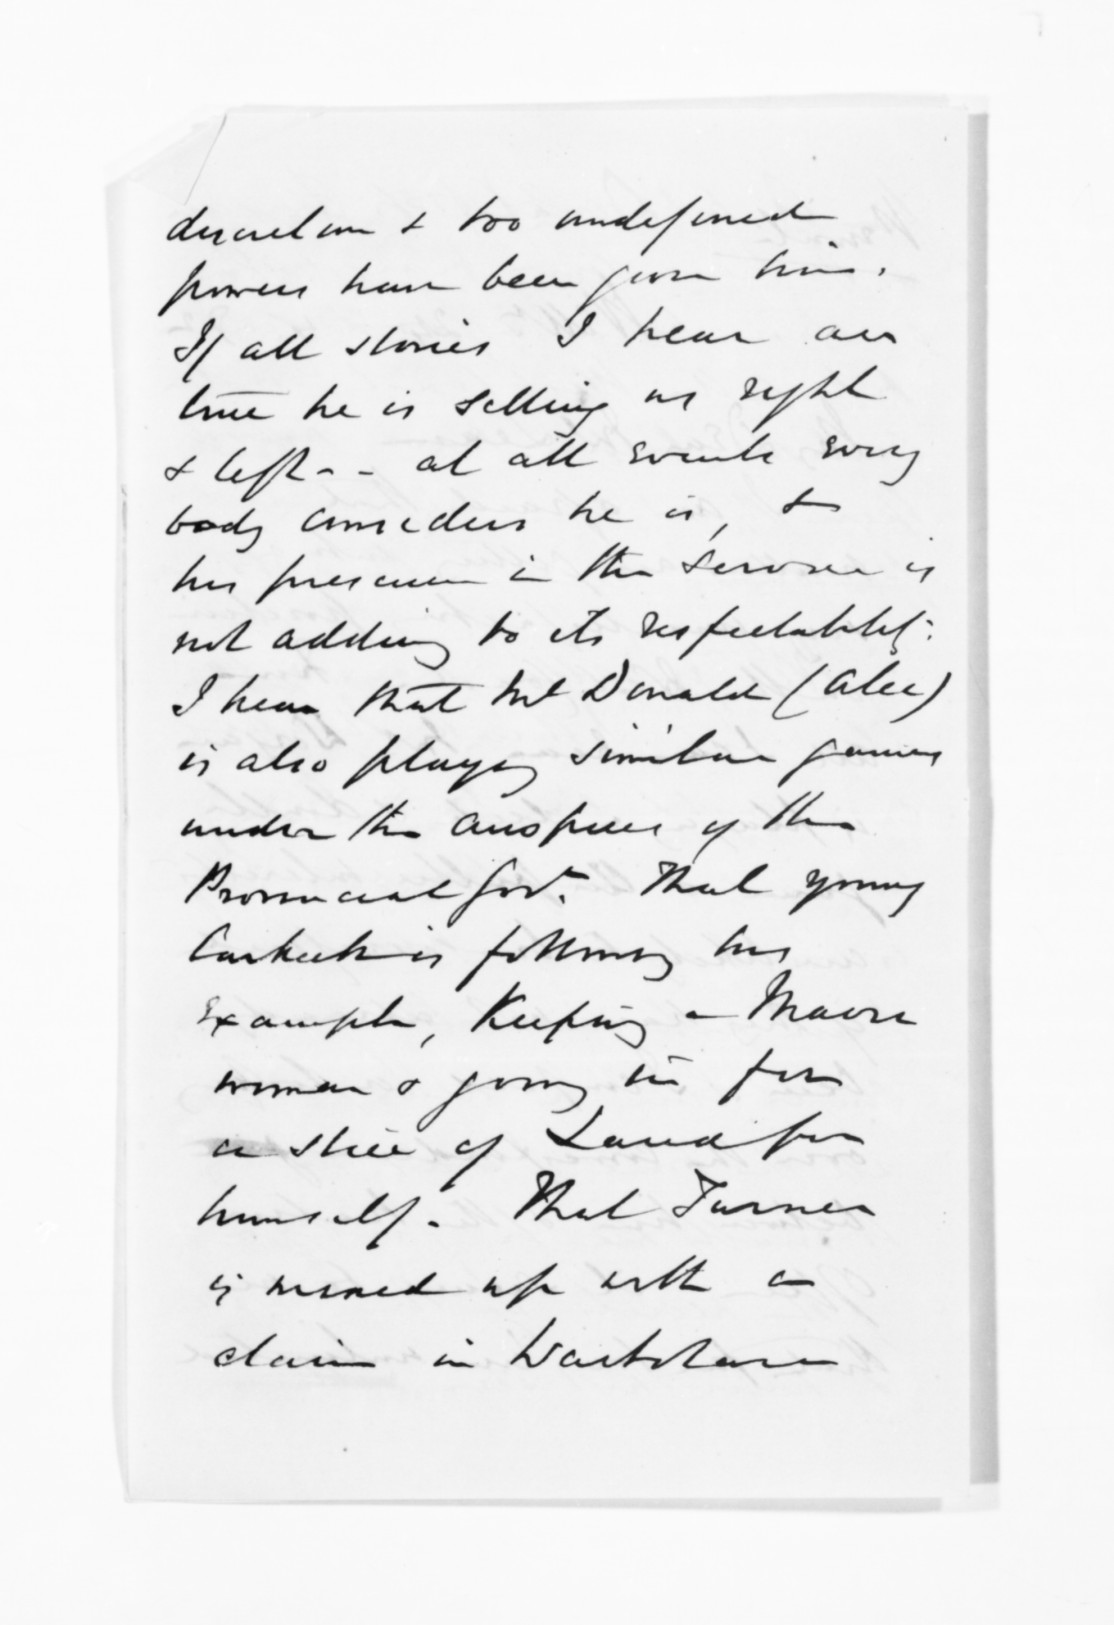 discretion & too undefined
powers have been given him.
If all stories I hear are
true he is selling us right
& left - - at all events every
body considers he is, &
his presence in the service is
not adding to its respectability.
I hear that McDonald (Alec)
is also playing similar games
under the auspices of the
Provincial Govt. That young
Carkeek is following his
example, Keeping a Maori
woman & going in for
a slice of Land for
himself. That Turner
is mixed up with a
claim in Waitotara